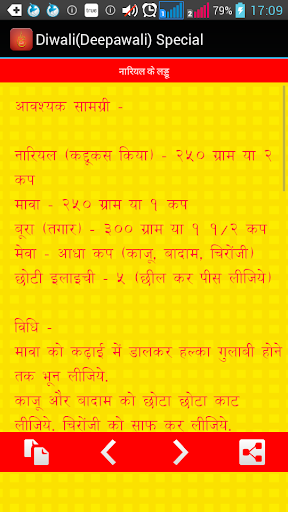 true
79%
17:09
Diwali(Deepawali) Special
नारियल के लड्डू
आवश्यक सामग्री -
नारियल (कद्दूकस किया) - २५० ग्राम या २
कप
मावा - २५० ग्राम या १ कप
बूरा (तगार) - ३०० ग्राम या १ १/२ कप
मेवा - आधा कप (काजू, बादाम, चिरोंजी)
छोटी इलाइची - ५ (छील कर पीस लीजिये)
विधि -
मावा को कढ़ाई में डालकर हल्का गुलाबी होने
तक भून लीजिये.
काजू और बादाम को छोटा छोटा काट
लीजिये. चिरोंजी को साफ कर लीजिये.